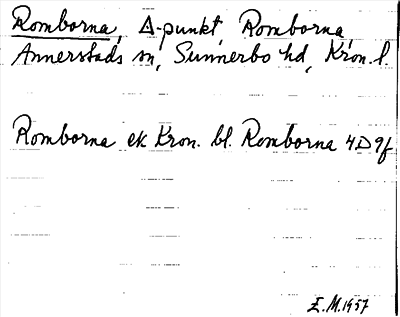 Romborna, Δ-punkt, Romborna
Annerstads sn, Sunnerbo hd, Kron. l.
Romborna ek Kron. bl. Romborna 4D9f
E.M. 1957